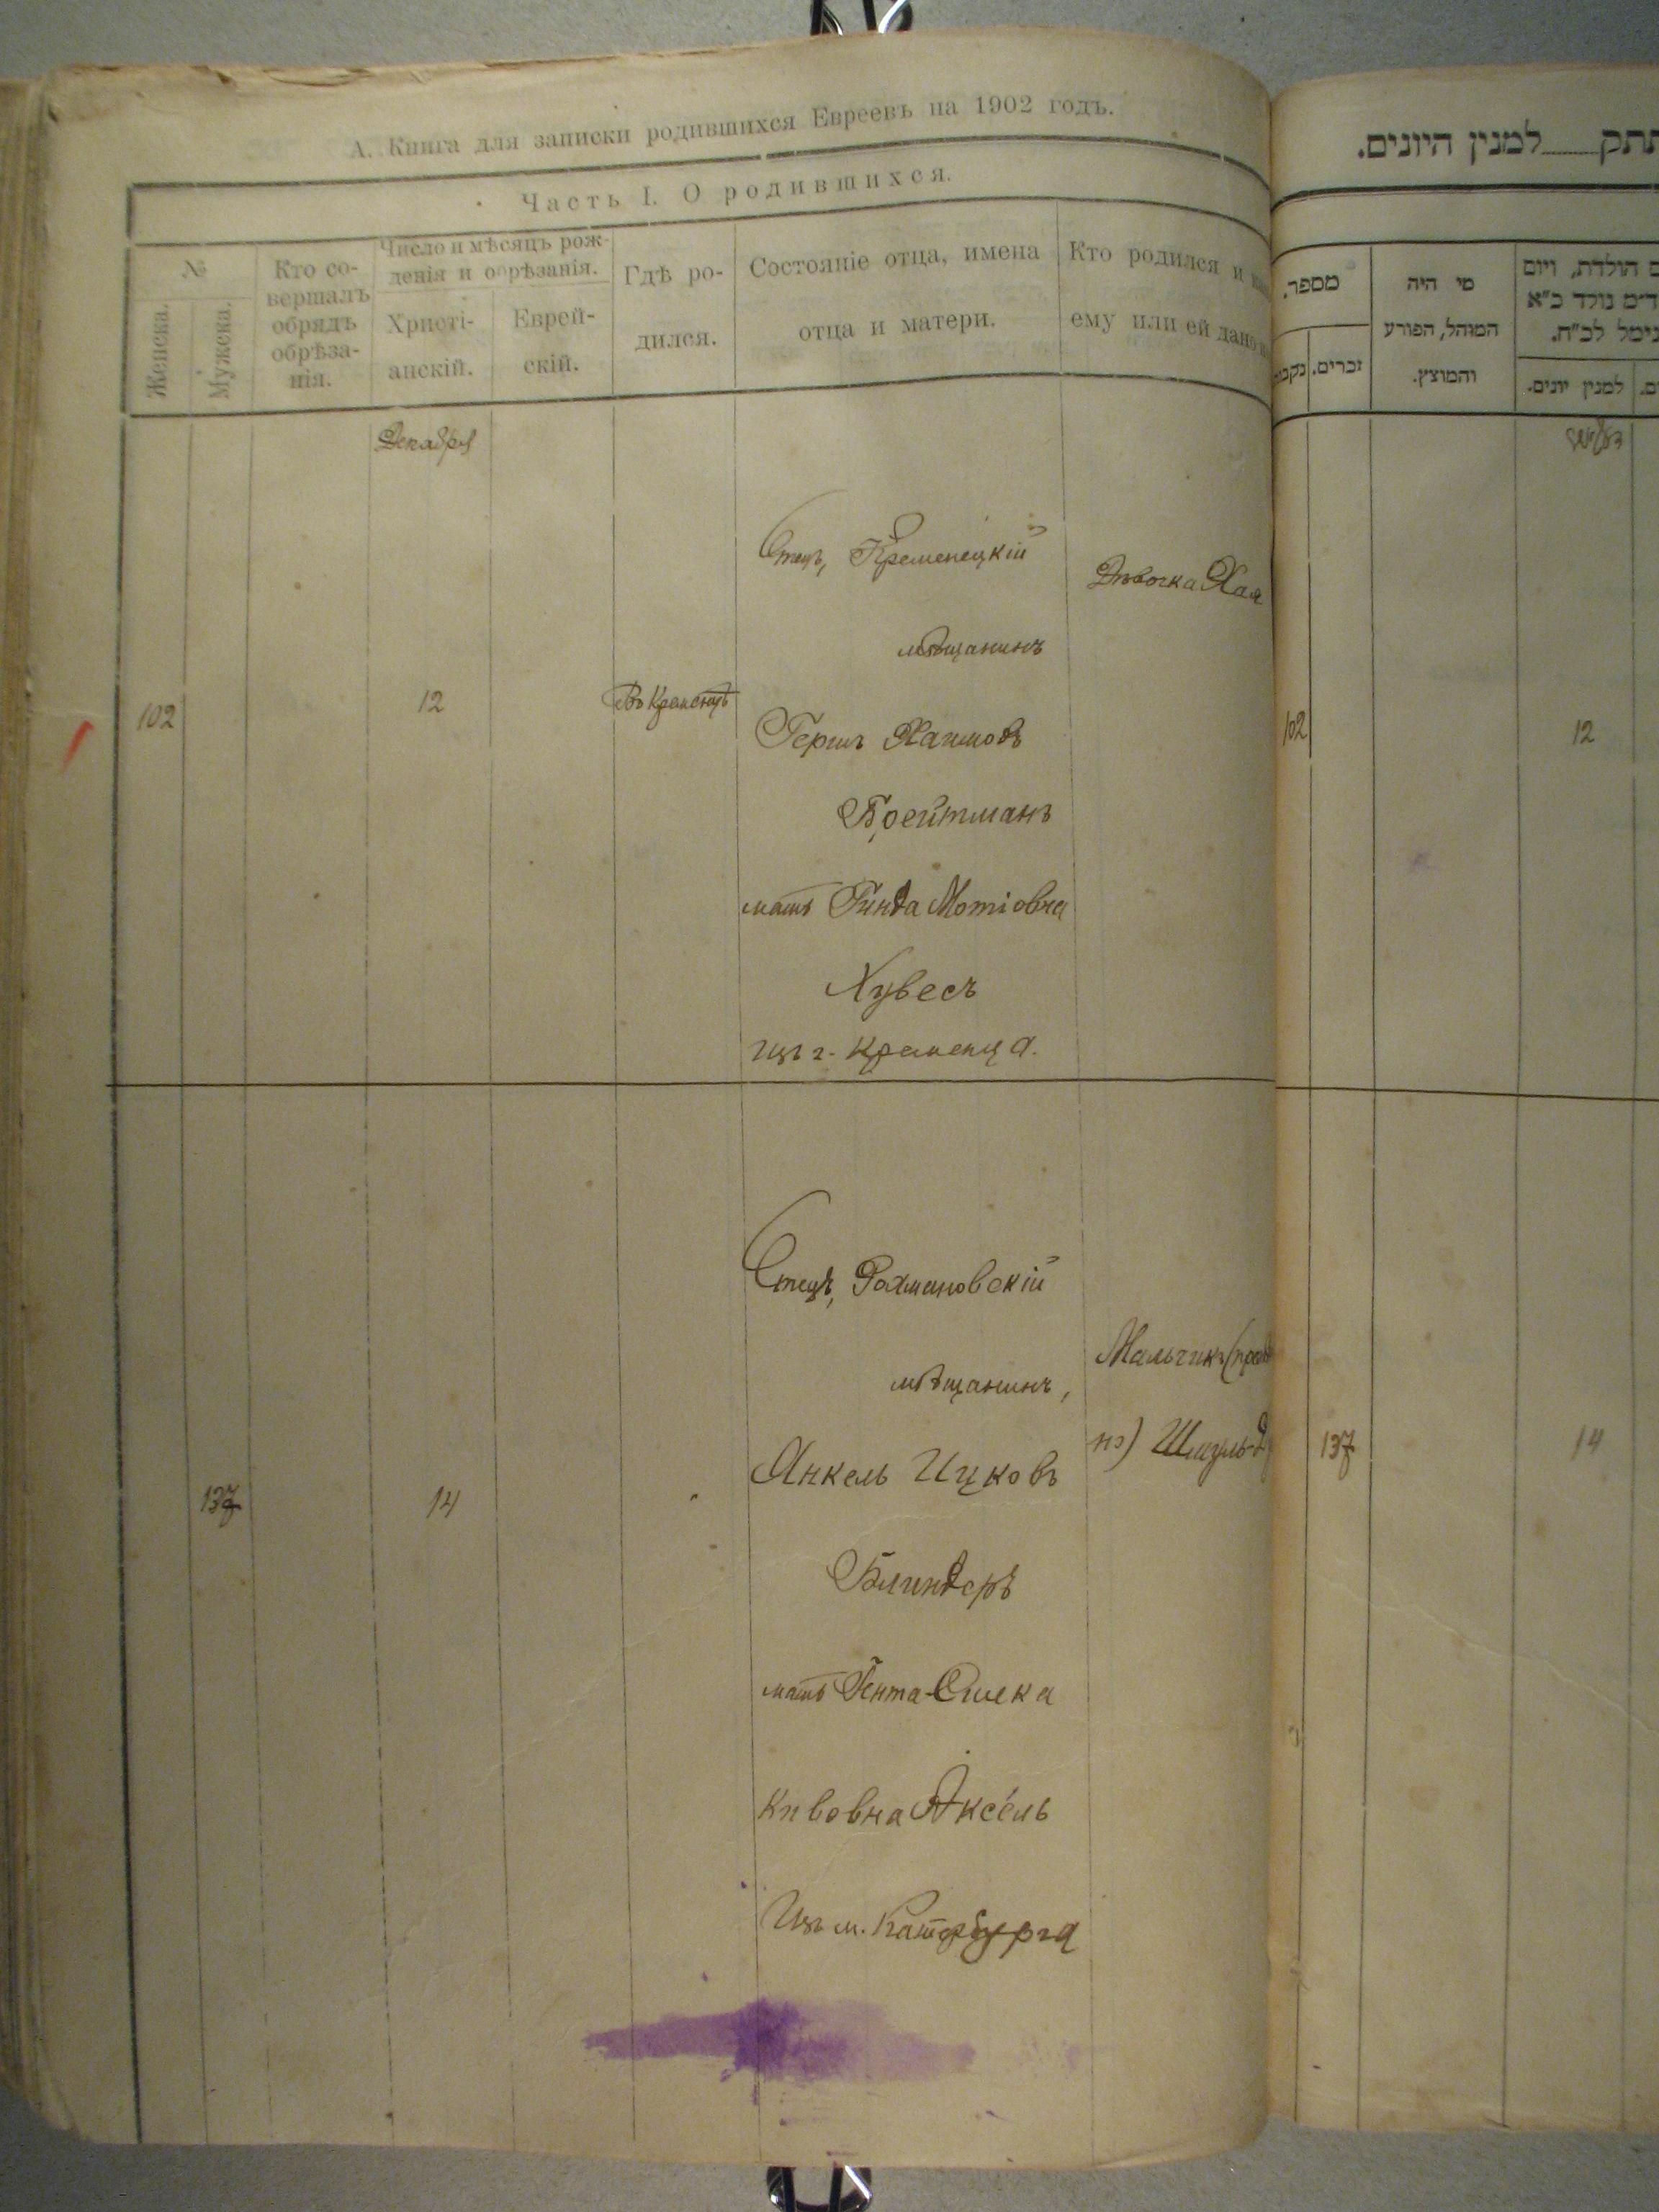 А. Книга для записки родившихся Евреевъ на 1902 годъ.
Часть I. О родившихся.
№
Женска.
Мужска.
Кто со-
вершалъ
обрядъ
обрѣза-
нія.
Число и мѣсяцъ рож-
денія и обрѣзанія.
Христі-
анскій.
Еврей-
скій.
Гдѣ ро-
дился.
Состояніе отца, имена
отца и матери.
Кто родился и
ему или ей дано
Декабря
102
12
Въ Кременцѣ
Отецъ, Кременецкій
мѣщанинъ
Гершъ Хаимовъ
Бройтманъ
мать Гинда Мотіовна
Хувесъ
изъ г. Кременца.
Дѣвочка Хая
137
14
Отецъ, Рахмановскій
мѣщанинъ,
Янкель Ицковъ
Блиндеръ
мать Гента-
Кивовна Аксель
Изъ м. Катербурга
Мальчикъ
но) Шмуль-
למנין היונים.
מספר.
זכרים.
מי היה
המוהל, הפורע
והמוצץ.
הולדת, ויום
נולד כ"א
לכ"ח.
למנין יונים.
102
12
137
14